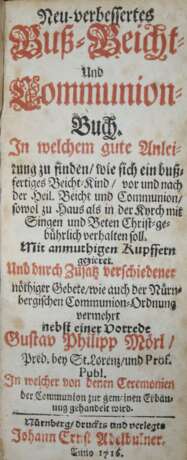 Neu-verbessertes
Buß-Beicht-
Und
Communion-
Buch.
In welchem gute Anlei-
tung zu finden/ wie sich ein buß-
fertiges Beicht-Kind/ vor und nach
der Heil. Beicht und Communion/
sowol zu Haus als in der Kyrch mit
Singen und Beten Christ-ge-
bührlich verhalten soll.
Mit anmuthigen Kupffern
gezieret.
Und durch Zusatz verschiedener
nöthiger Gebete/ wie auch der Nürn-
bergischen Communion-Ordnung
vermehrt
nebst einer Vorrede
Gustav Philipp Mörl/
Pred. bey St. Lorenz/ und Prof.
Publ.
In welcher von denen Ceremonien
der Communion zur gemeinen Erbau-
ung gehandelt wird.
Nürnberg/ druckts und verlegts
Johann Ernst Adelbulner.
Anno 1716.